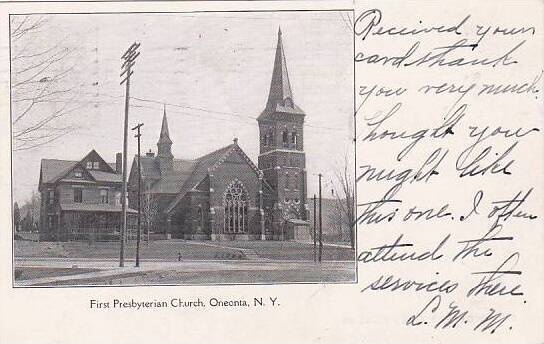 First Presbyterian Church, Oneonta, N. Y.
Received your
cards thank
you very much.
Thought you
might like
this one. I often
attend the
services there.
L. M. M.